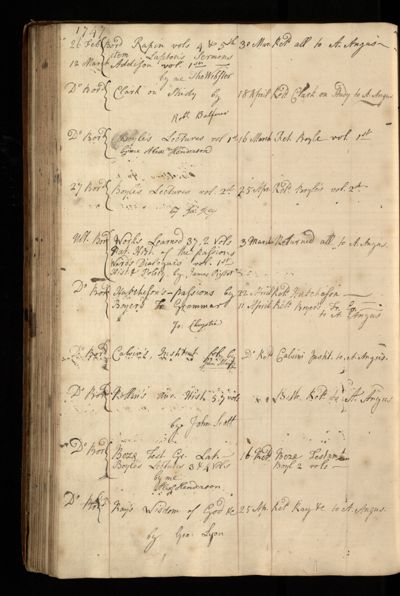 1747
26 Feb Bord Rapin vols 4 & 5th 30 Mar Retd all to A. Angus
item Lupton's Sermons
12 March Addison vol. 1st
by me Tho Webster
Do Bord Clark on Study by 18 April Retd Clark on Study to A. Angus
Robt Balfour
Do Bord Boyle's Lectures vol 1st 16 March Retd Boyle vol. 1st
by me Alexr Henderson
27 Bord Boyle's Lectures vol. 2d 25 Apr Retd Boyle's vol. 2d
by
Ult. Bord Works Learned 37, 2 vols 3 March Returned all to A. Angus
Nat. Hist. of the Passions
Dialogues vol. 1st
by James
Do Bord Hutcheson's passions by 22 April Retd Hutcheson
Boyer's Fr Grammar 11 April Retd Boyer's Fr. Gr.
to A. Angus
Jo: Chrystie
Do Bord Calvin's Institut. fol. by Do Retd Calvin's Instit. to A. Angus.
Do Bord Rollin's Anc. Hist. 5, 7 vol Retd to A. Angus
by John Scott
Do Bord Beze Test Gr. Lat. 16 Retd Beze Testamt
Boyle's Lectures 3 & 4 vols Boyl 2 vols
by me
Alexr Henderson
Do Bord Ray's Wisdom of God &c 25 Apr Retd Ray &c to A. Angus.
by Geo. Lyon